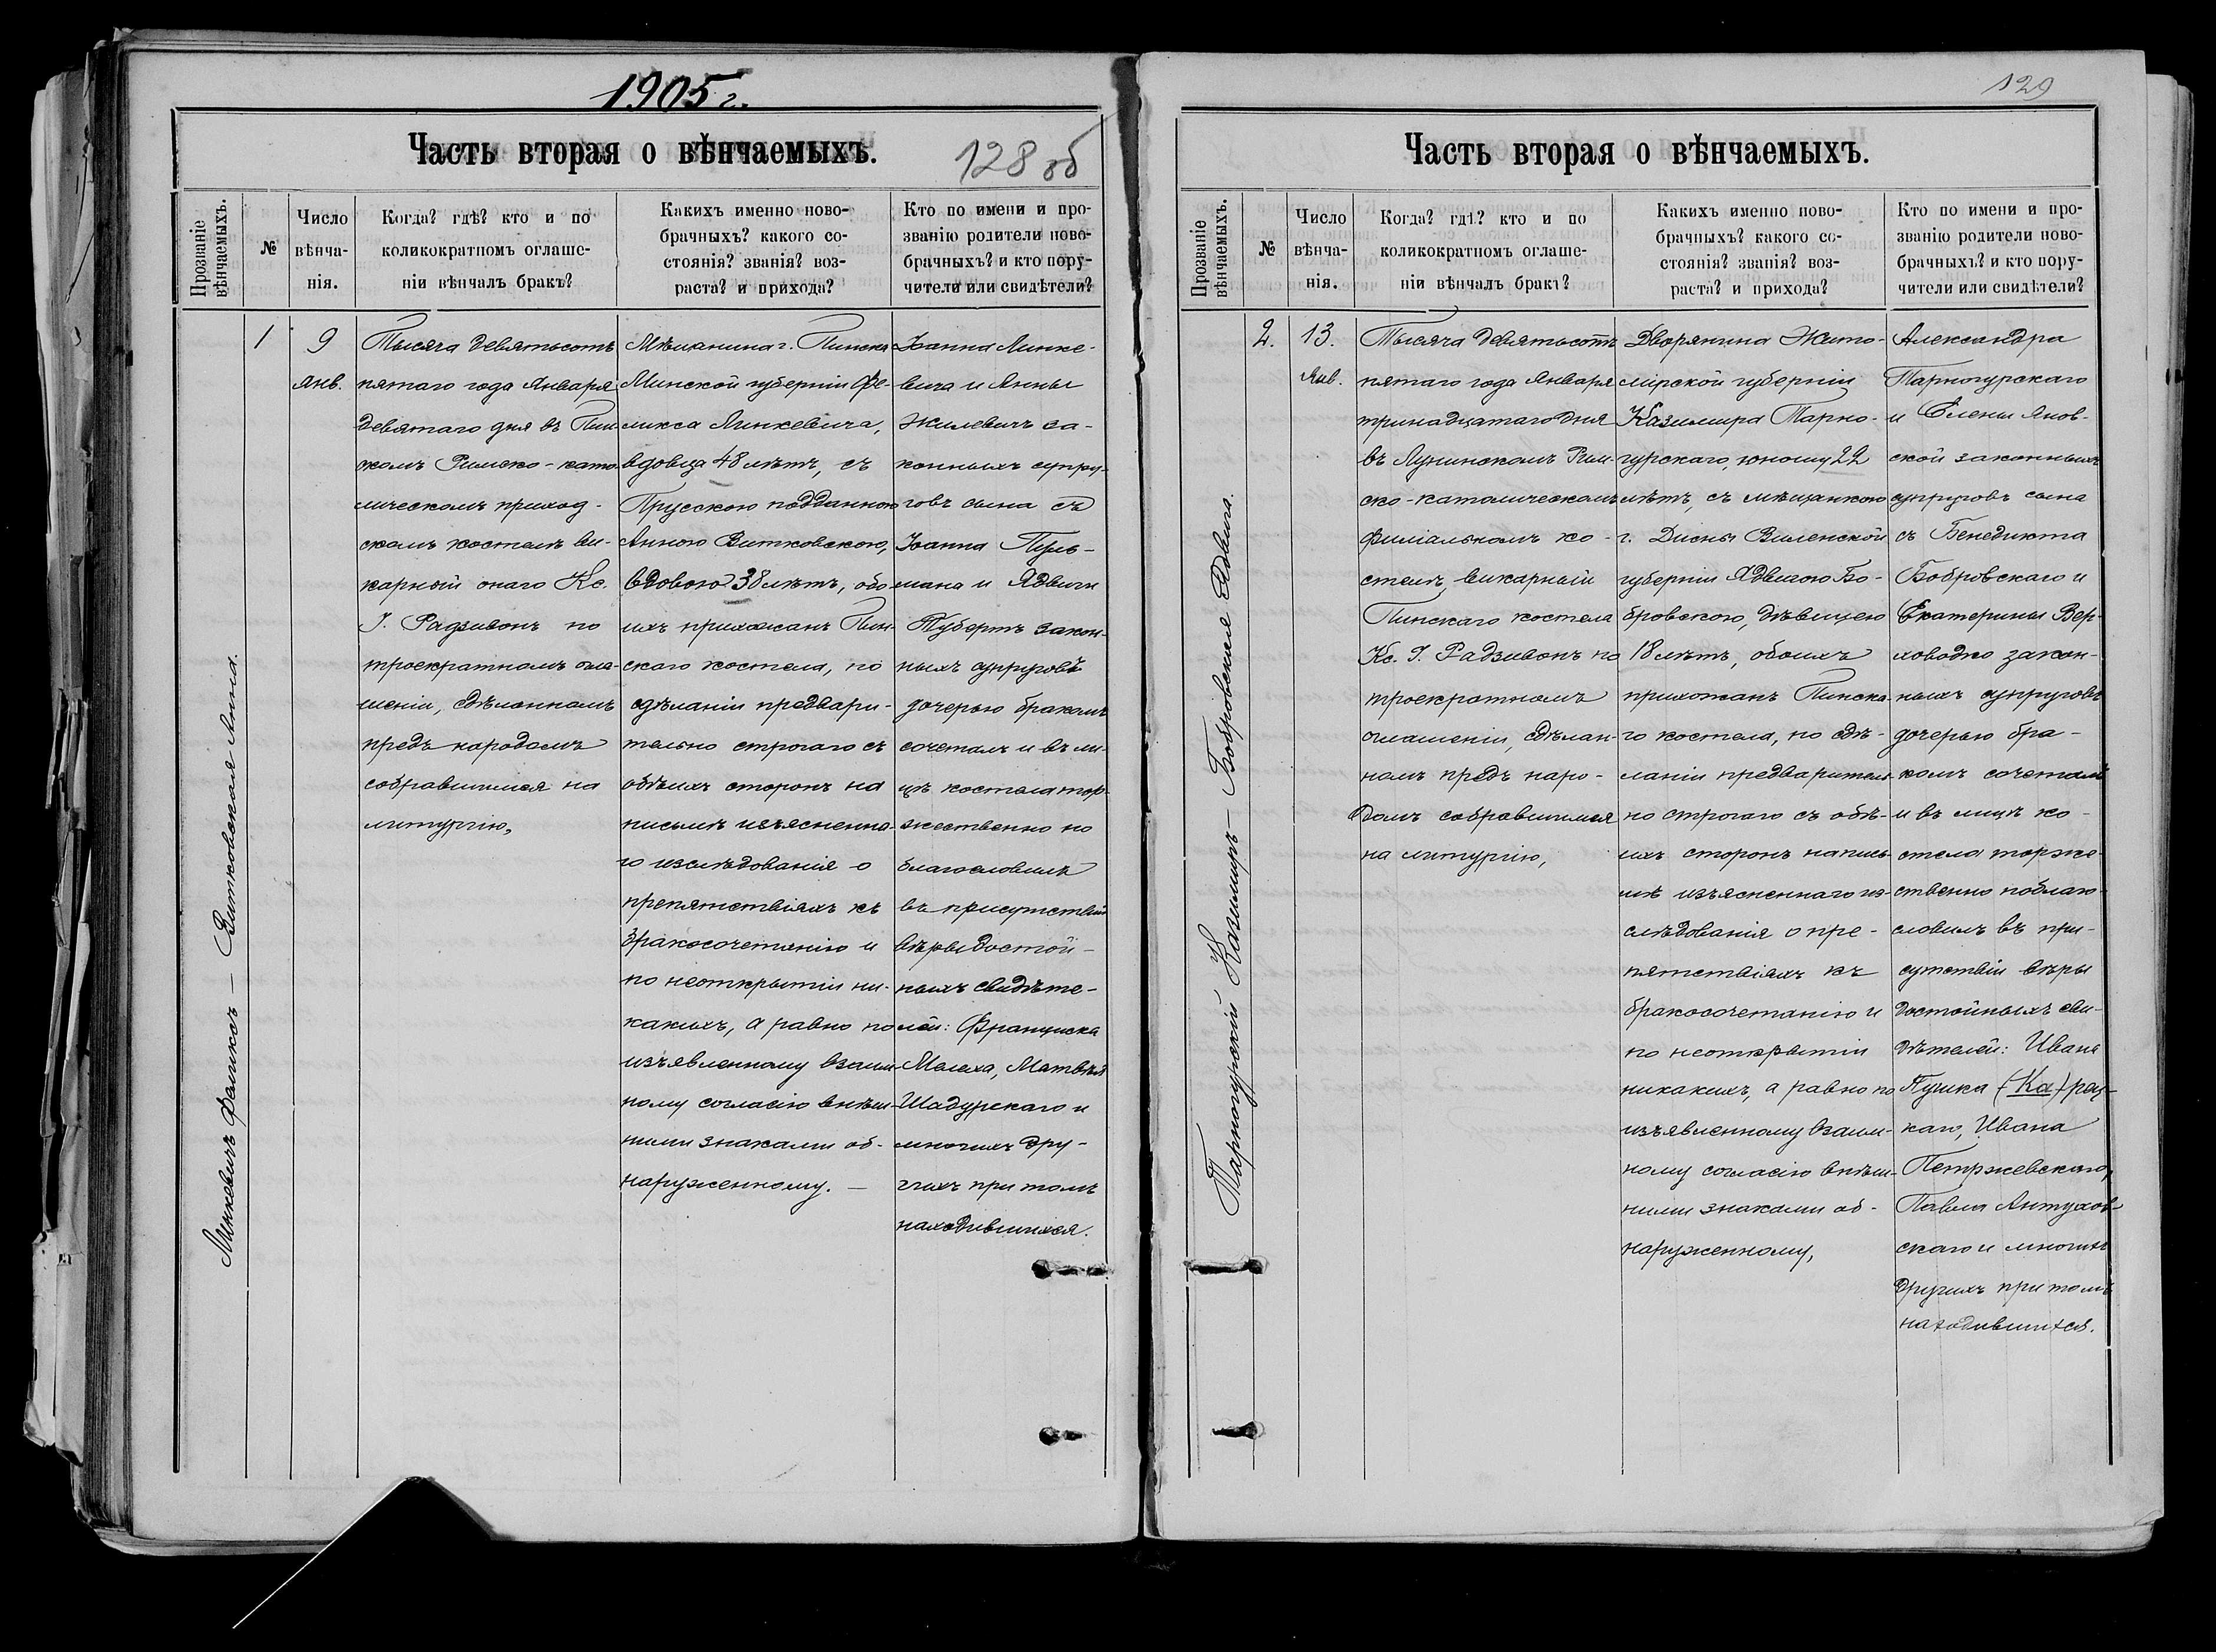 1905 г.
Часть вторая о вѣнчаемыхъ.
128 об
Прозваніе
вѣнчаемыхъ.
№
Число
вѣнча-
нія.
Когда? гдѣ? кто и по
коликократномъ оглаше-
ніи вѣнчалъ бракъ?
Какихъ именно ново-
брачныхъ? какого со-
стоянія? званія? воз-
раста? и прихода?
Кто по имени и про-
званію родители ново-
брачныхъ? и кто пору-
чители или свидѣтели?
Минкевичъ Феликсъ — Витковская Анна.
1
9
янв.
Тысяча девятьсотъ
пятаго года Января
девятаго дня въ Пин
скомъ Римско-като-
лическомъ приход-
скомъ костелѣ ви-
карный онаго Кс.
І. Радзивонъ по
троекратномъ огла-
шеніи, сдѣланномъ
предъ народомъ
собравшимся на
литургію,
Мѣщанина г. Пинска
Минской губерніи Фе-
ликса Минкевича,
вдовца 48 лѣтъ, съ
Прусскою подданною
Анною Витковскою,
вдовою 38 лѣтъ, обо
ихъ прихожанъ Пин-
скаго костела, по
сдѣланіи предвари-
тельно строгаго съ
обѣихъ сторонъ на
письмѣ изъясненна-
го изслѣдованія о
препятствіяхъ къ
бракосочетанію и
по неоткрытіи ни-
какихъ, а равно по
изъявленному взаим-
ному согласію внѣш-
ними знаками об-
наруженному. —
Іоанна Минке-
вича и Анны
Жилевичъ за-
конныхъ супру-
говъ сына съ
Іоанна Пуль-
мана и Ядвиги
Губертъ закон-
ныхъ супруговъ
дочерью бракомъ
сочеталъ и въ ли-
цѣ костела тор-
жественно по
благословилъ
въ присутствіи
вѣры достой-
ныхъ свидѣте-
лей: Франциска
Малеха, Матвѣя
Шадурскаго и
многихъ дру-
гихъ при томъ
находившихся.
129
Часть вторая о вѣнчаемыхъ.
Прозваніе
вѣнчаемыхъ.
№
Число
вѣнча-
нія.
Когда? гдѣ? кто и по
коликократномъ оглаше-
ніи вѣнчалъ бракъ?
Какихъ именно ново-
брачныхъ? какого со-
стоянія? званія? воз-
раста? и прихода?
Кто по имени и про-
званію родители ново-
брачныхъ? и кто пору-
чители или свидѣтели?
Тарногурскій Казимиръ — Бобровская Ядвига.
2.
13.
Янв.
Тысяча девятьсотъ
пятаго года Января
тринадцатаго дня
въ Лунинскомъ Рим-
ско-католическомъ
филіальномъ ко-
стелѣ, викарный
Пинскаго костела
Кс. І. Радзивонъ по
троекратномъ
оглашеніи, сдѣлан-
номъ предъ наро-
домъ собравшимся
на литургію,
Дворянина Жито-
мірской губерніи
Казимира Тарно-
гурскаго, юношу 22
лѣтъ, съ мѣщанкою
г. Дисны Виленской
губерніи Ядвигою Бо-
бровскою, дѣвицею
18 лѣтъ, обоихъ
прихожанъ Пинска-
го костела, по сдѣ-
ланіи предваритель-
но строгаго съ обѣ-
ихъ сторонъ на пись-
мѣ изъясненнаго из-
слѣдованія о пре-
пятствіяхъ къ
бракосочетанію и
по неоткрытіи
никакихъ, а равно по
изъявленному взаим-
ному согласію внѣш-
ними знаками об-
наруженному,
Александра
Тарногурскаго
и Елены Янов-
ской законныхъ
супруговъ сына
съ Бенедикта
Бобровскаго и
Екатерины Вер-
ховодко закон-
ныхъ супруговъ
дочерью бра-
комъ сочеталъ
и въ лицѣ ко-
стела торже-
ственно поблаго-
словилъ въ при-
сутствіи вѣры
достойныхъ сви-
дѣтелей: Ивана
Пушка (Ка)
каго, Ивана
Петржевскаго,
Павла Антухов-
скаго и многихъ
другихъ при томъ
находившихся.